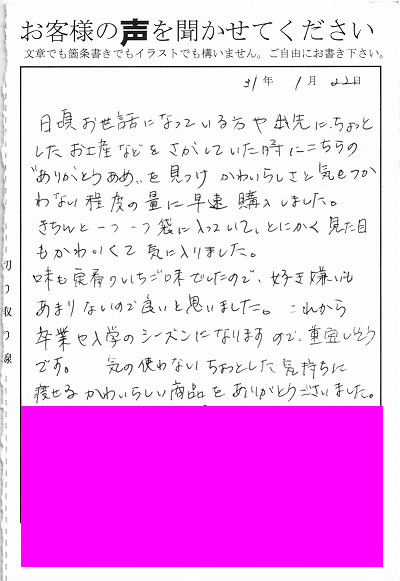 お客様の声を聞かせてください
文章でも箇条書きでもイラストでも構いません。ご自由にお書き下さい。
31年 1月 22日
日頃お世話になっている方や出先に、ちょっと
したお土産などをさがしていた時にこちらの
"ありがとうあめ"を見つけ かわいらしさと気をつか
わない程度の量に早速購入しました。
きちんと一つ一つ袋に入っていて、とにかく見た目
もかわいくて気に入りました。
味も定番のいちご味でしたので、好き嫌いも
あまりないので良いと思いました。これから
卒業や入学のシーズンになりますので、重宝しそう
です。 気の使わないちょっとした気持ちに
渡せるかわいらしい商品をありがとうございました。
切り取り線